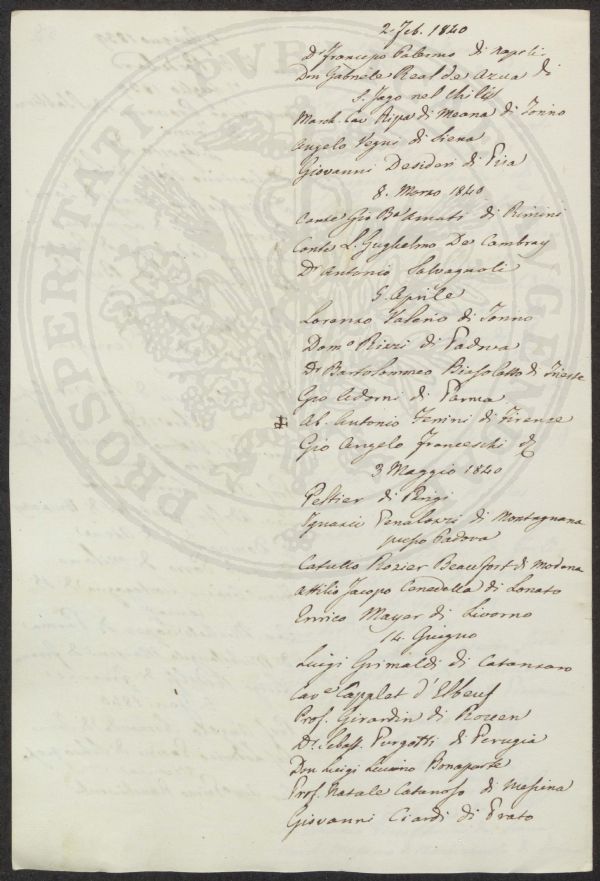 2. Feb. 1840
Dr Francesco Palermo di Napoli
Don Gabriele Real de Azua di
S. Jago nel Chilì
March. Cav. Ripa di Meana di Torino
Angelo Vegni di Siena
Giovanni Desideri di Pisa
8. Marzo 1840
Conte Gio Ba di Rimini
Conte L. Guglielmo De Cambray
Dr Antonio Salvagnoli
5 Aprile
Lorenzo Valerio di Torino
Domo Rizzi di Padova
Dr Bartolommeo Biasoletto di Trieste
Gio di Parma
Ab. Antonio di Firenze
Gio Angelo Franceschi
3 Maggio 1840
Peltier di Parigi
di Montagnana
presso Padova
Catullo Rozier Beaufort di Modena
Attilio Jacopo Cenedella di Lonato
Enrico Mayer di Livorno
14. Giugno
Luigi Grimaldi di Catanzaro
Cave Capplet d'Elbeuf
Prof. Girardin di Rouen
Dr Sebast. Purgotti di Perugia
Don Luigi Luciano Bonaparte
Prof. Natale Catanoso di Messina
Giovanni Ciardi di Prato
PROSPERITATI PUBLICAE AUGENDAE